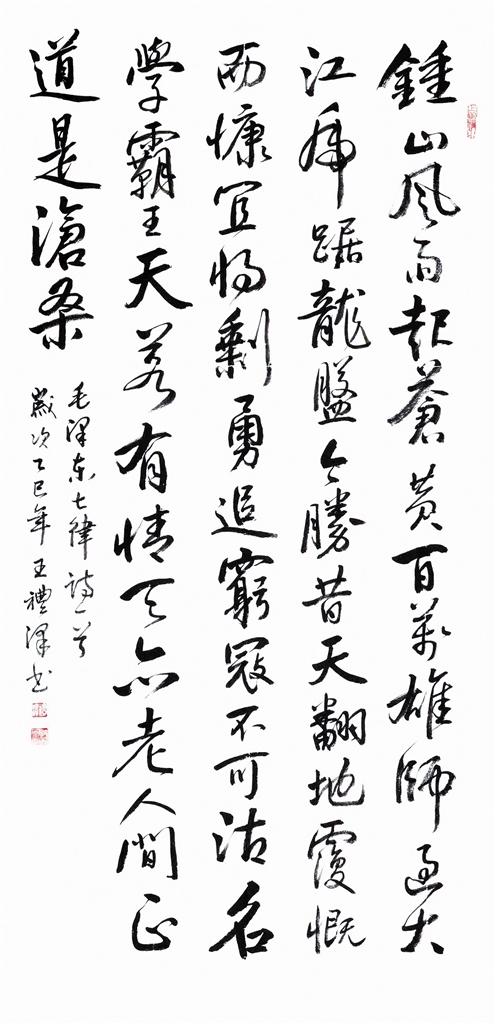 鍾山風雨起蒼黃百萬雄師過大
江虎踞龍盤今勝昔天翻地覆慨
而慷宜將剩勇追窮寇不可沽名
學霸王天若有情天亦老人間正
道是滄桑
毛澤東七律詩一首
歲次乙巳年王禮澤書